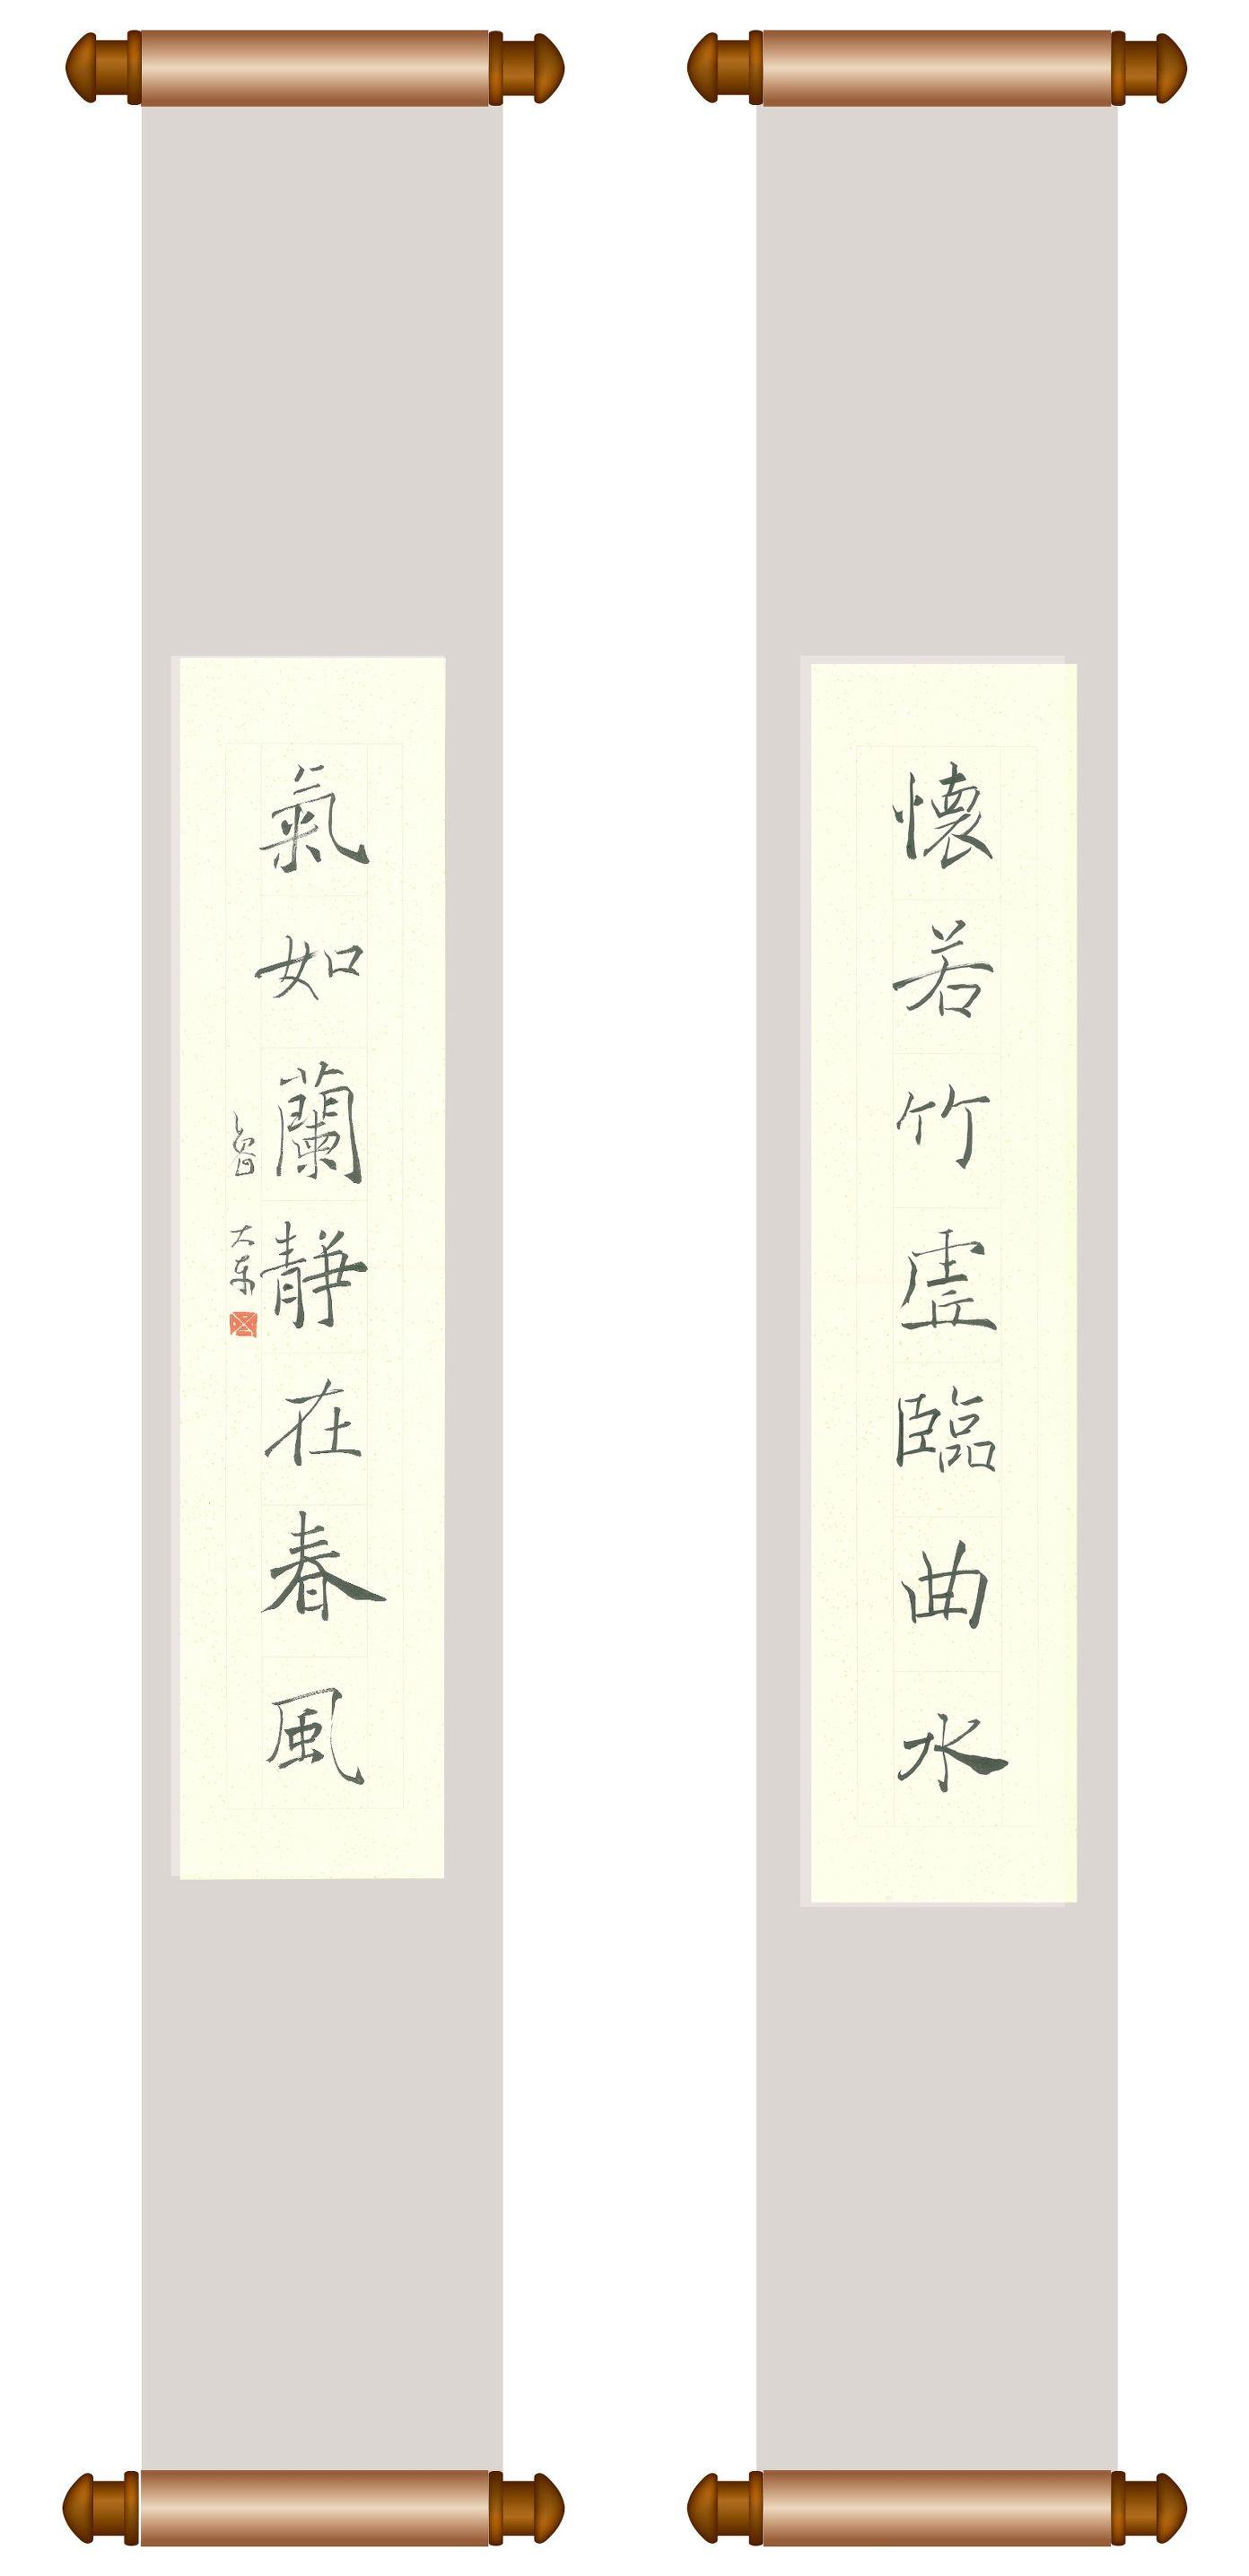 懷若竹虛臨曲水
氣如蘭靜在春風
大東